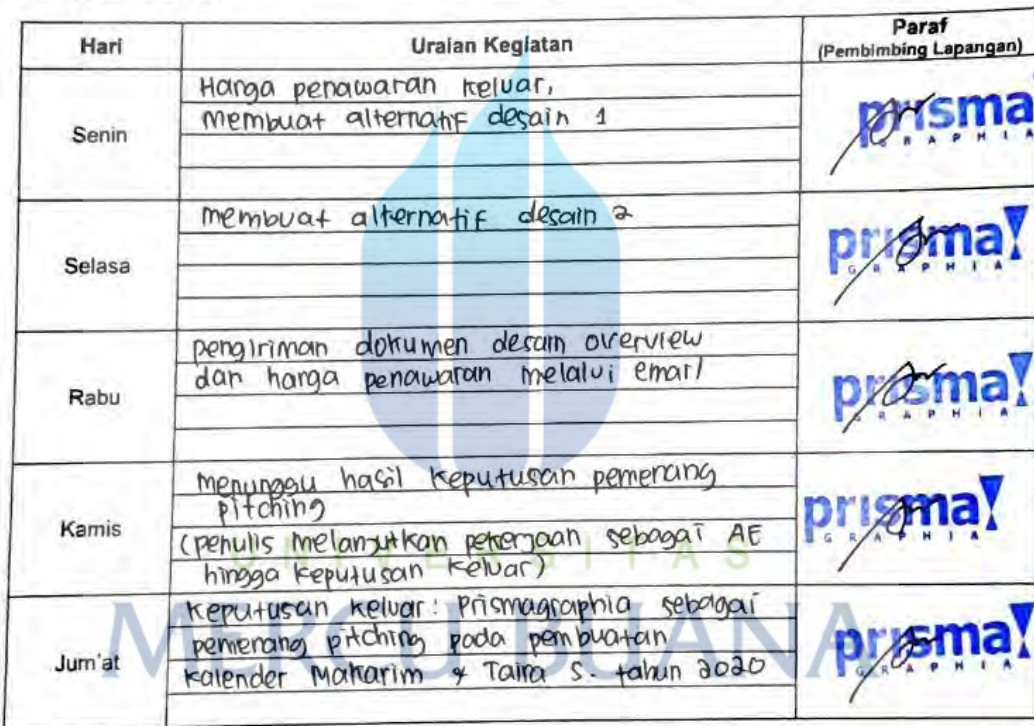 Hari
Uraian Kegiatan
Paraf
(Pembimbing Lapangan)
Senin
Harga penawaran keluar,
membuat alternatif desain 1
prisma
GRAPHIA
Selasa
membuat alternatif desain 2
prisma!
GRAPHIA
Rabu
pengiriman dokumen desain overview
dan harga penawaran melalui email
prisma!
GRAPHIA
Kamis
menunggu hasil keputusan pemenang
pitching
(penulis melanjutkan pekerjaan sebagai AE
hingga keputusan keluar)
prisma!
GRAPHIA
Jum'at
keputusan keluar: Prismagraphia sebagai
pemenang pitching pada pembuatan
kalender Makarim & Taira S. tahun 2020
prisma!
GRAPHIA
UNIVERSITAS
MERCU BUANA